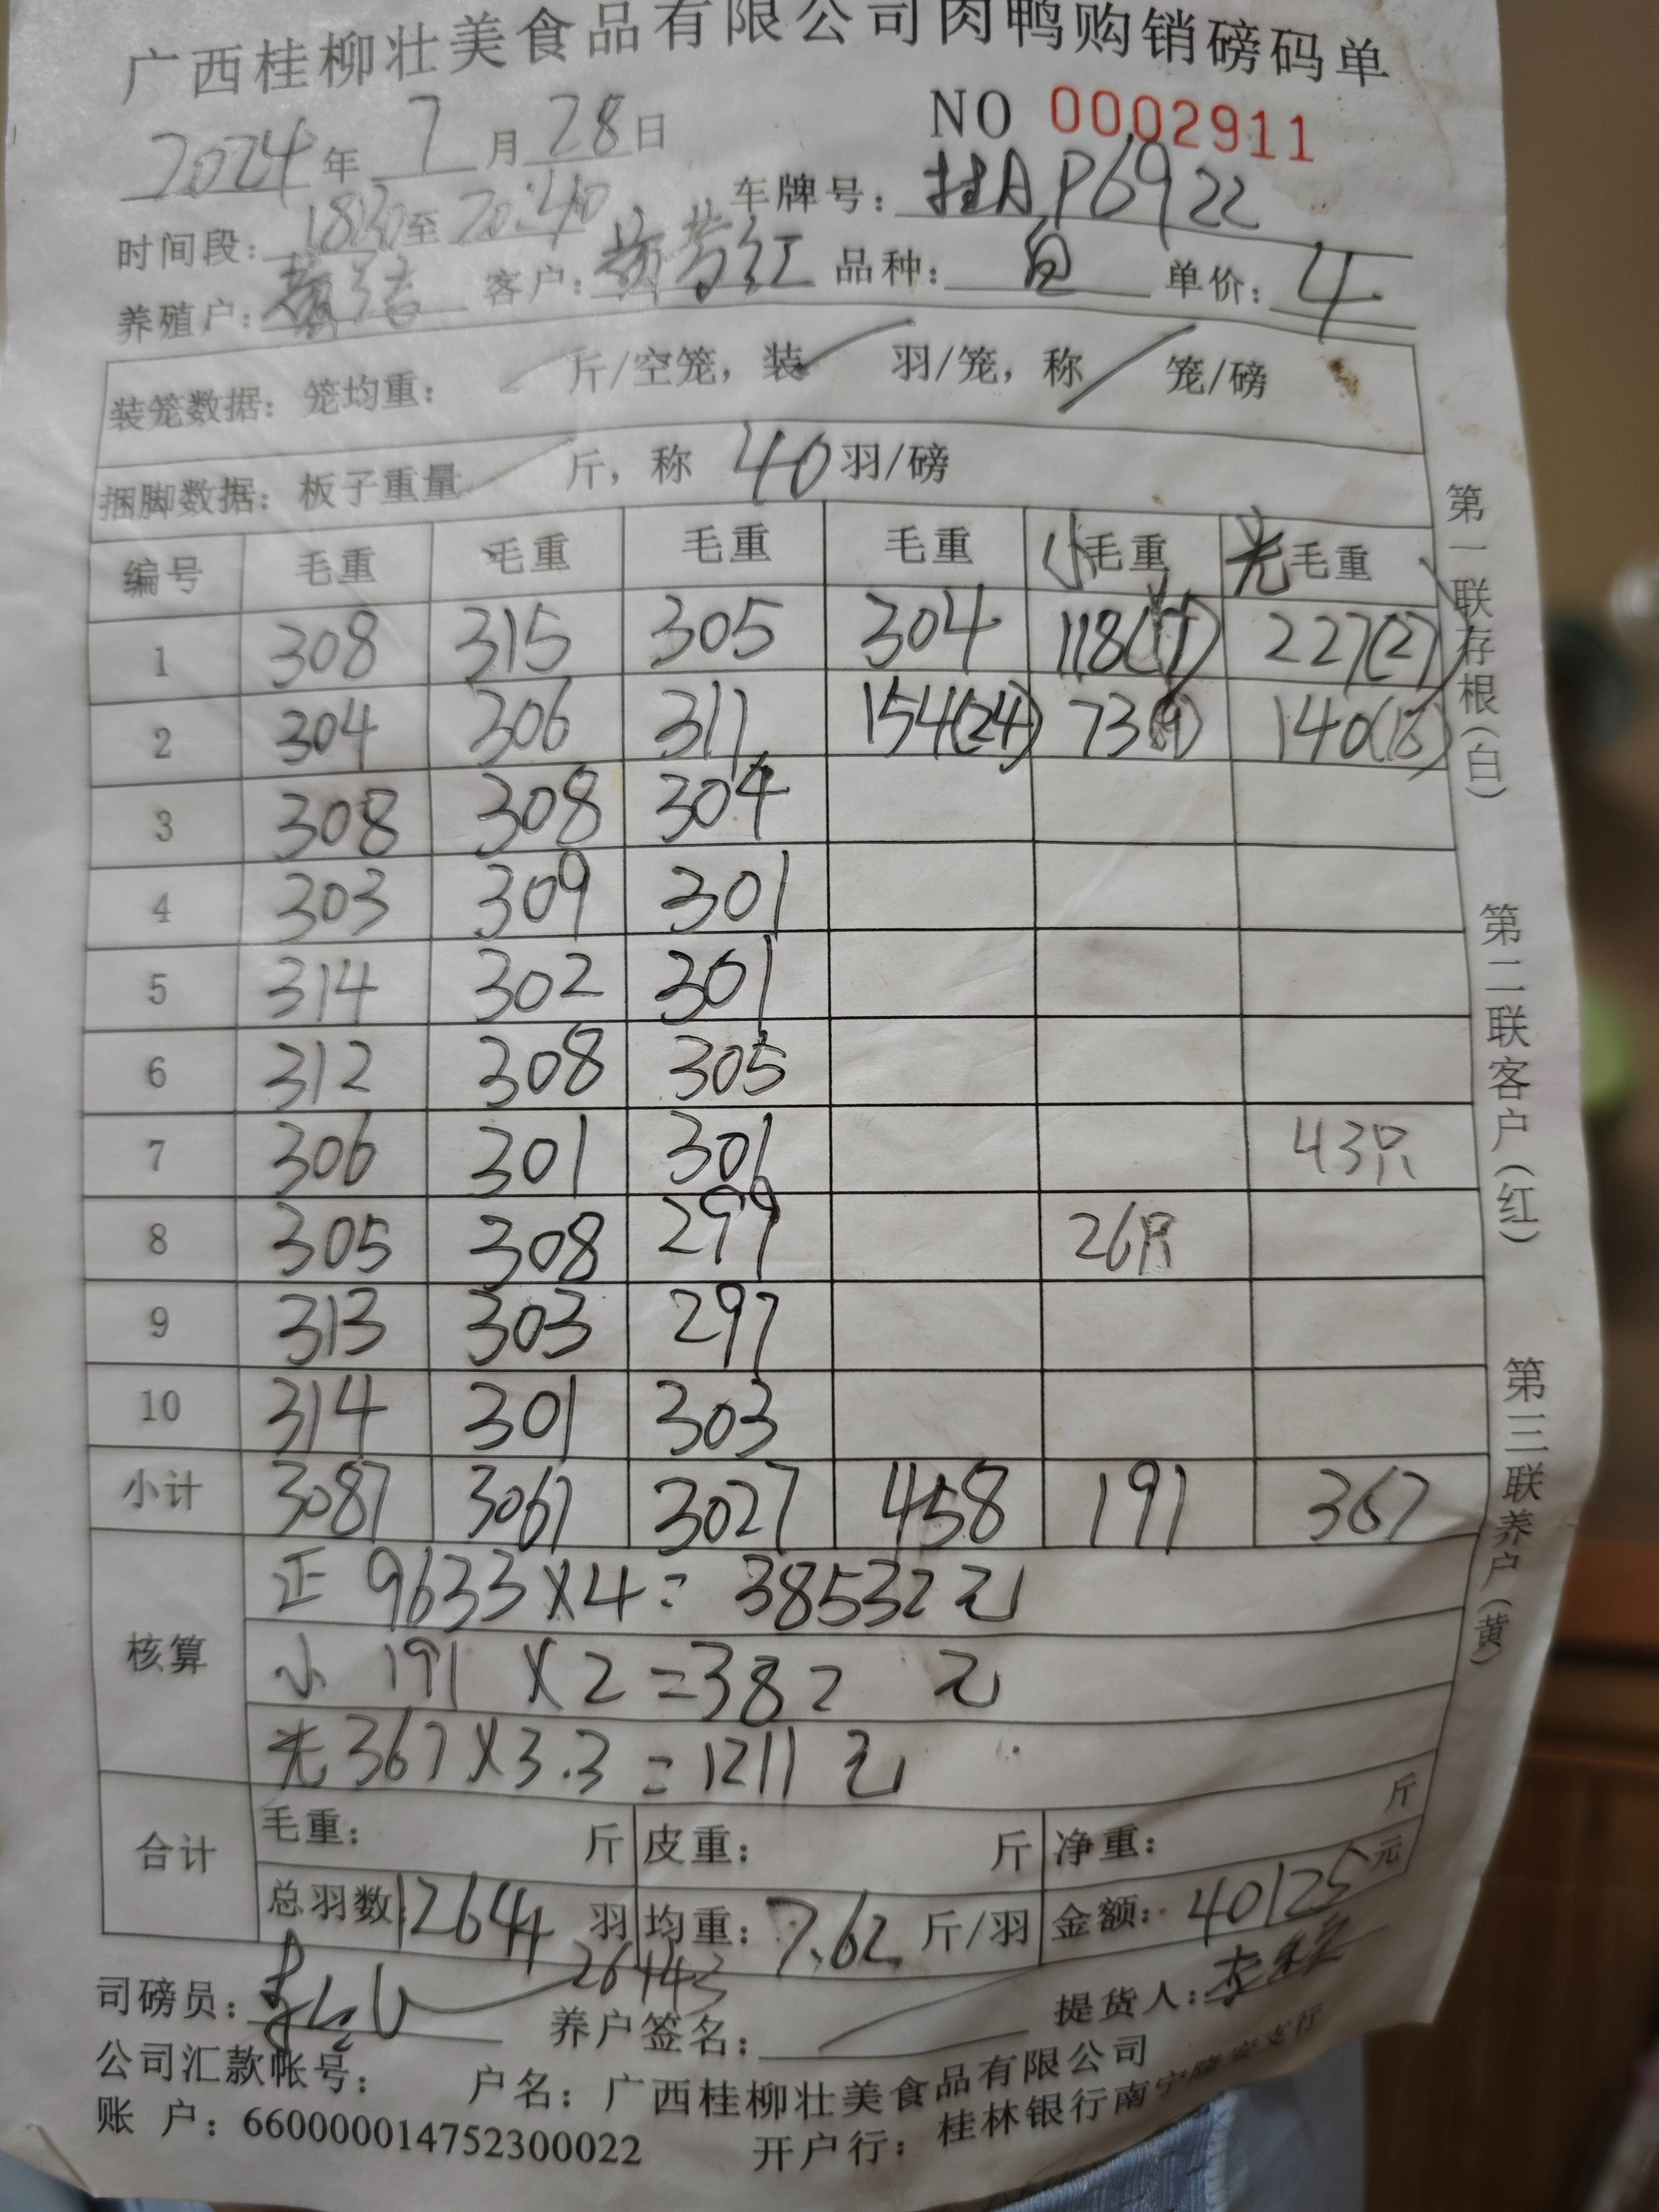 广西桂柳壮美食品有限公司肉鸭购销磅码单
2024年7月28日 NO 0002911
时间段：1830至20:40 车牌号：桂AP6922
养殖户： 客户：黄芳红 品种：白 单价：4
装笼数据：笼均重： 斤/空笼，装 羽/笼，称 笼/磅
捆脚数据：板子重量 斤，称 40羽/磅
编号 毛重 毛重 毛重 毛重 小毛重 光毛重
1 308 315 305 304 118(17) 227(27)
2 304 306 311 154(24) 73(9) 140(16)
3 308 308 304
4 303 309 301
5 314 302 301
6 312 308 305
7 306 301 301 43只
8 305 308 299 26只
9 313 303 297
10 314 301 303
小计 3087 3061 3027 458 191 367
核算
正 9633×4=38532元
小 191×2=382 元
光367×3.3=1211元
合计
毛重： 斤 皮重： 斤 净重： 斤
总羽数：1264 羽 均重：7.62 斤/羽 金额：40125元
26 43
司磅员： 养户签名： 提货人：
公司汇款帐号： 户名：广西桂柳壮美食品有限公司
账 户：660000014752300022 开户行：桂林银行南宁隆安支行
第一联存根(白) 第二联客户(红) 第三联养户(黄)